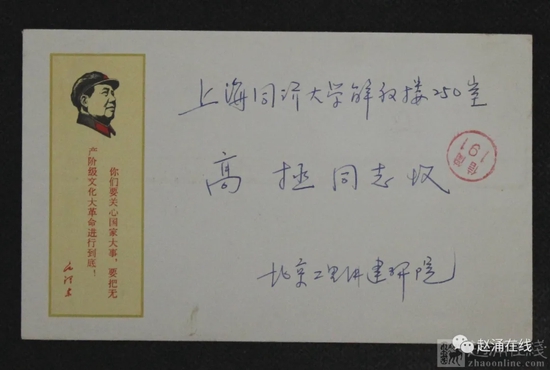 上海同济大学解放楼250室
高 拯 同志收
北京工
研院
你们要关心国家大事，要把无
产阶级文化大革命进行到底！
毛泽东
191
赵涌在线
赵涌在线
zhaoonline.com